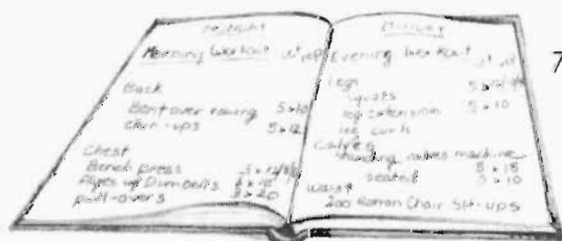 Morning Workout
Back
Bent over rowing 5 x 10
chin-ups 5 x 12
Chest
Bench press
Flyes w/ Dumbells
pull-overs
Evening Workout
Legs
squats
leg extension 5 x 10
leg curls
Calves
standing calves machine
5 x 15
seated 5 x 10
Waist
200 Roman Chair Sit-ups
7